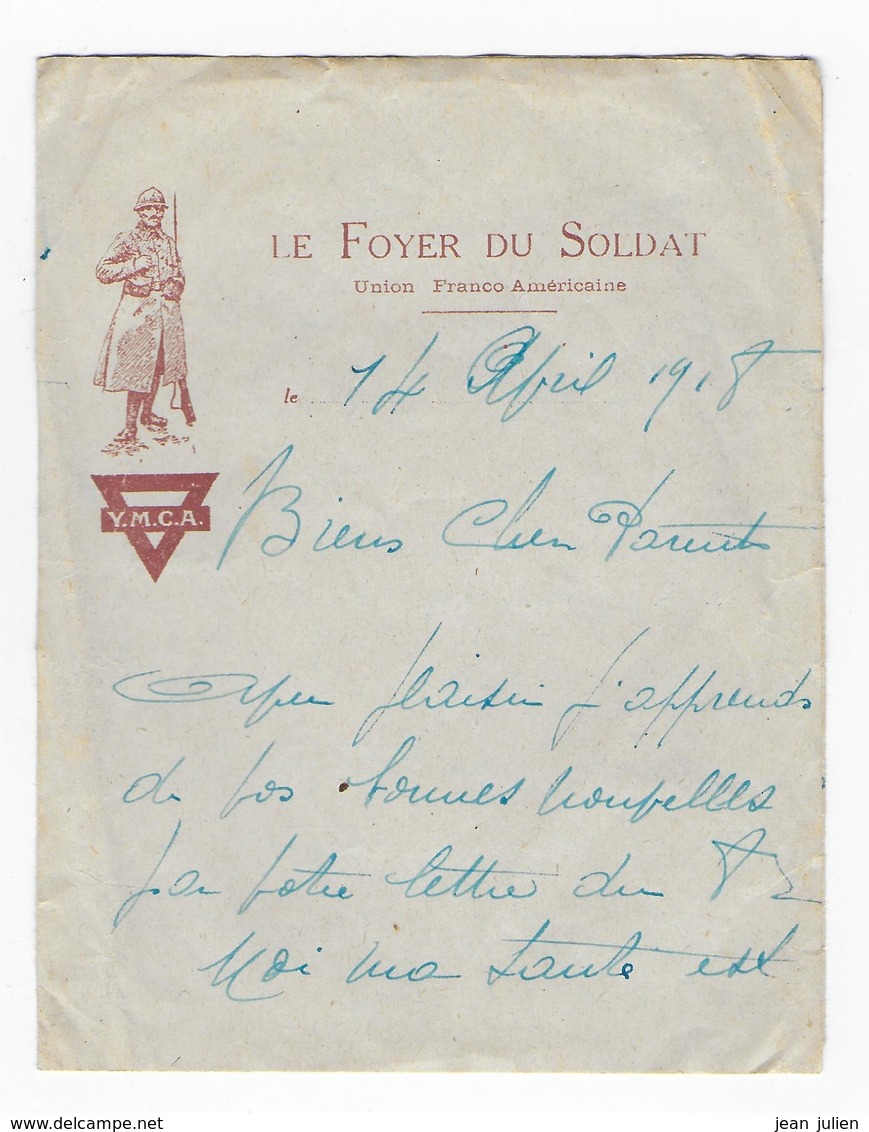 LE FOYER DU SOLDAT
Union Franco-Américaine
le 14 Avril 1918
Y.M.C.A.
Biens Chers Parents
Avec plaisir j'apprends
de vos bonnes nouvelles
par votre lettre du 8
Moi ma santé est
jean julien